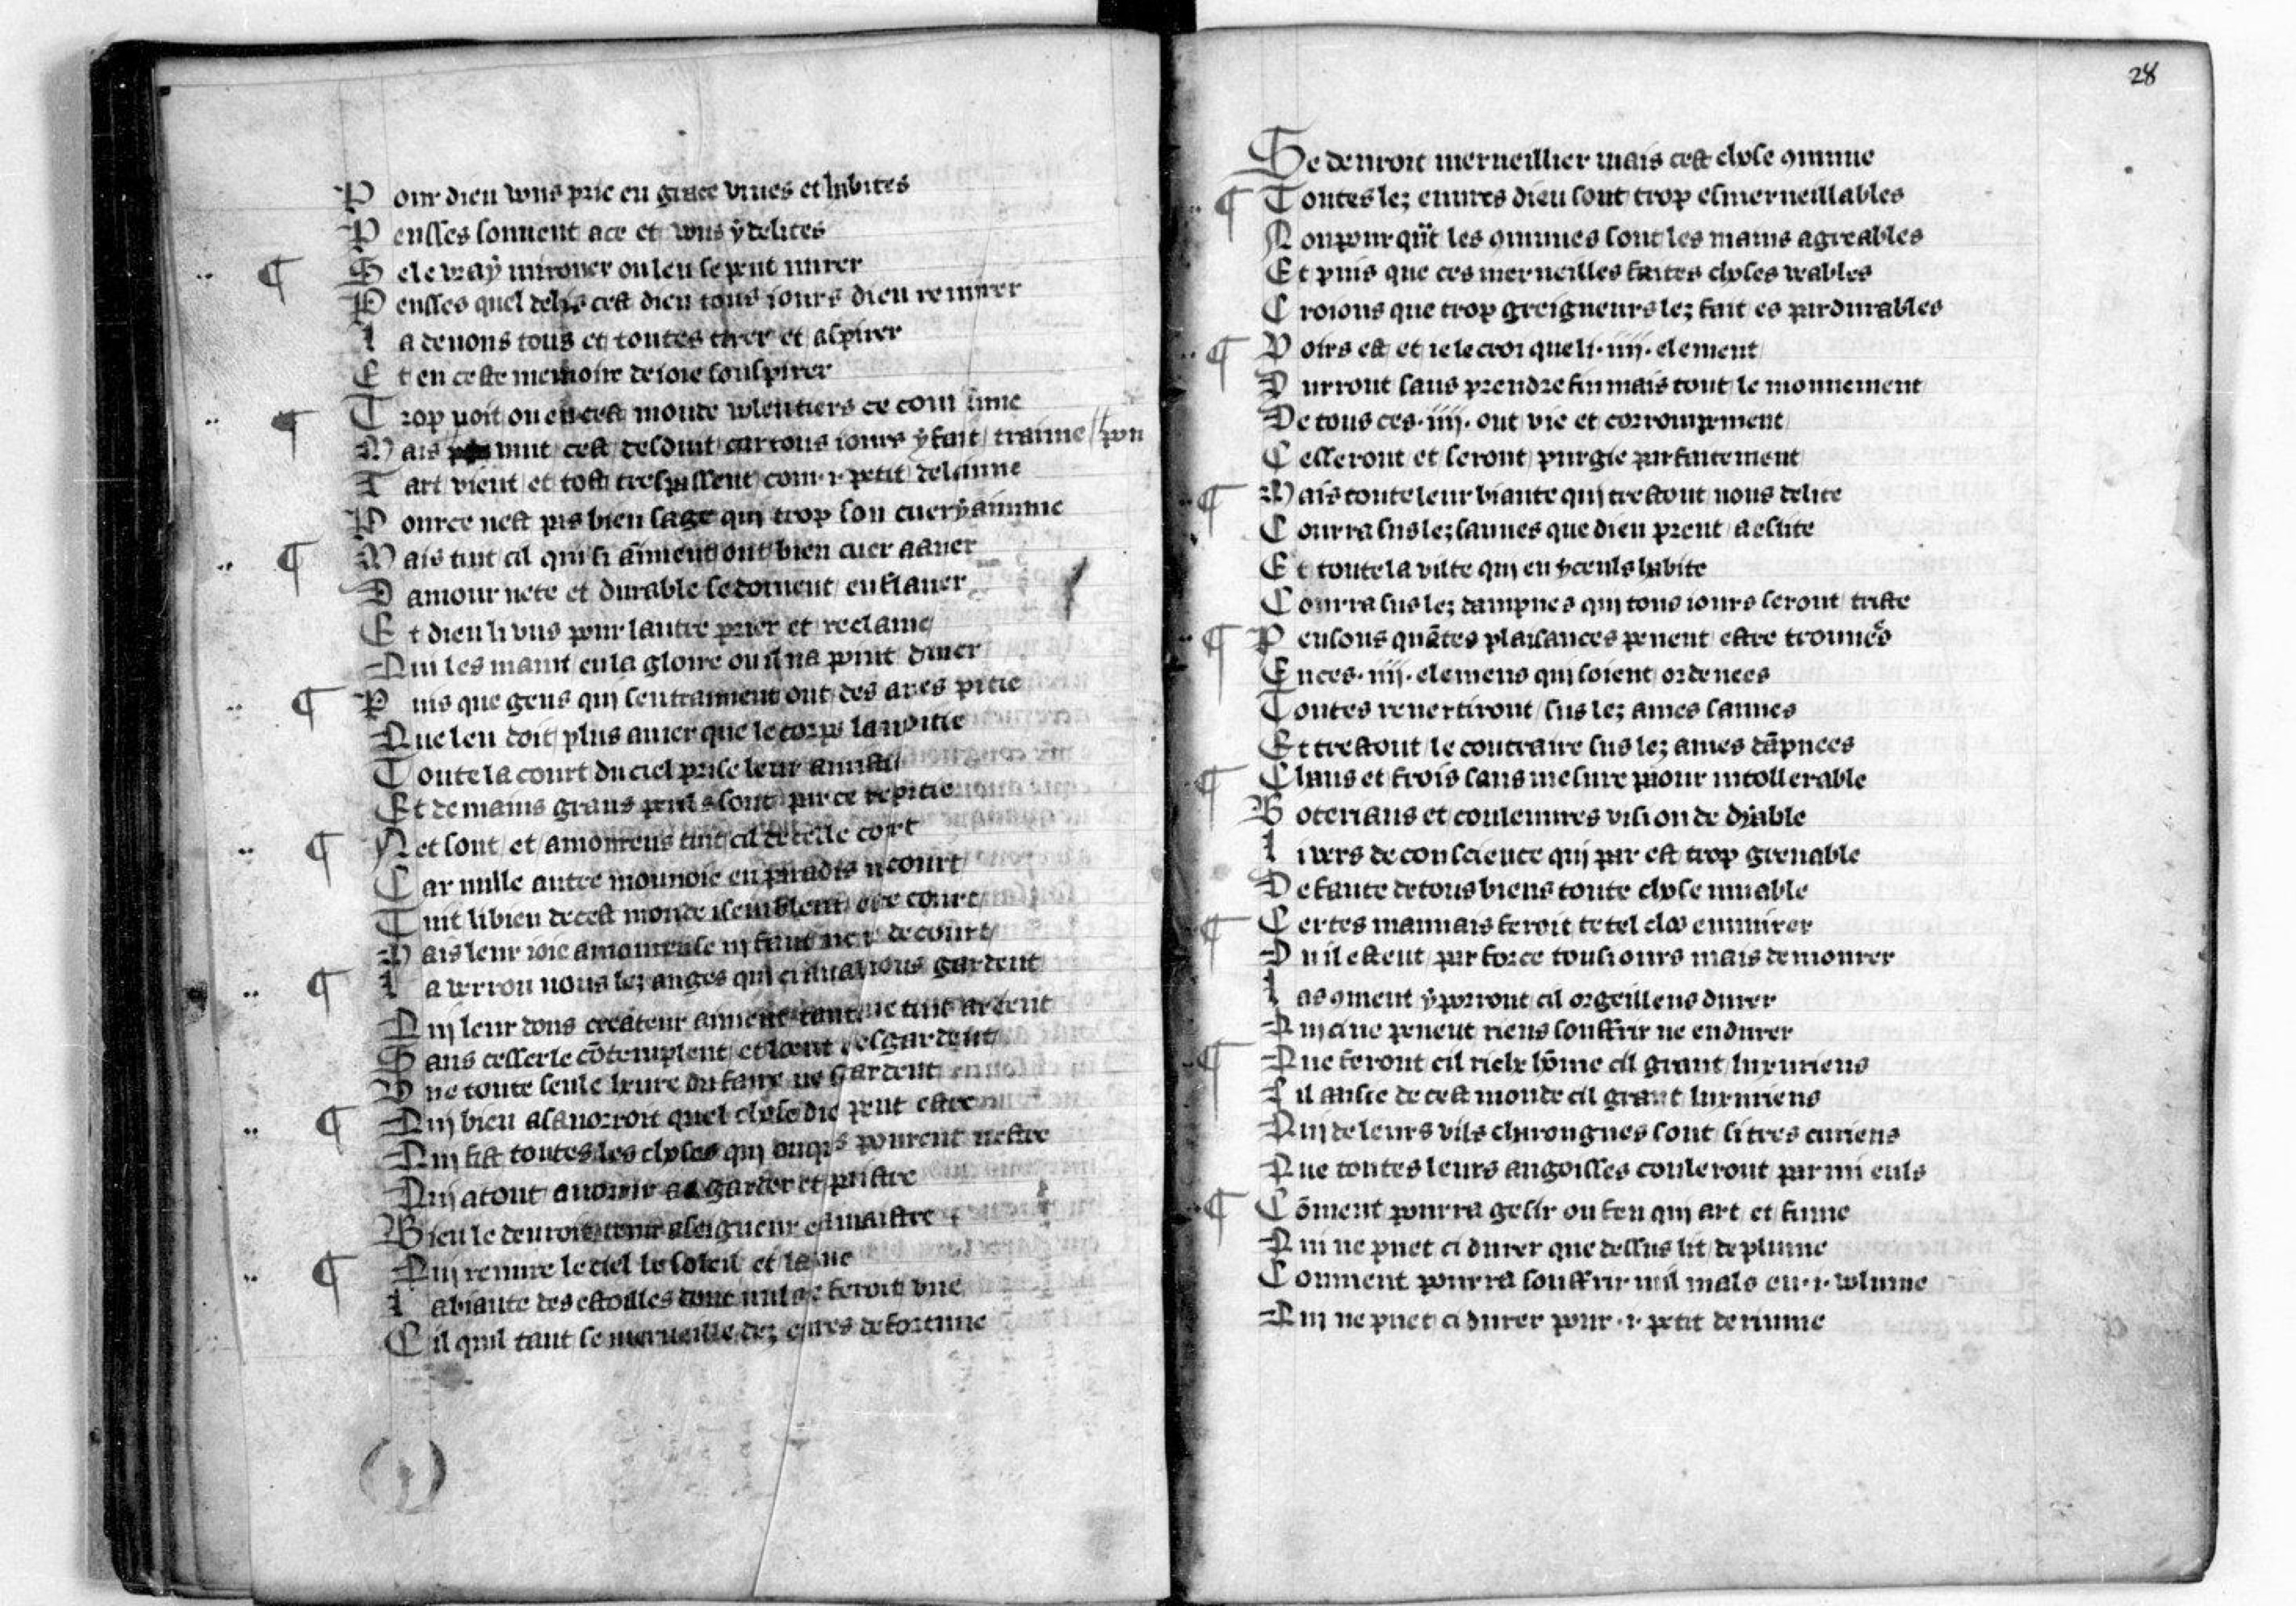 Pour dieu vous prie en grace viues et habites
Pensses souuent ace et vous ÿ delites
¶ Se le vraÿ mirouer ou len se peut mirer
Pensses quel delis cest dieu tous iours dieu remirer
La deuons tous et toutes tirer et aspirer
Et en ceste memoire de ioie souspirer
¶ Trop uoit on en cest monde volentiers ce con lime
Mais nuit cest desduit car tous iours ÿ faut traime // pou
Tart vient et tost trespassent com .i. petit delaime
Pource nest pas bien sage qui trop son cuer ÿ aimme
¶ Mais tuit cil qui si aimment ont bien cuer aamer
Damour nete et durable se doiuent enflamer
Et dieu li vns pour lautre prier et reclame
Qui les maint en la gloire ou il na point damer
¶ Puis que gens qui sentraiment ont des ames pitie
Que len doit plus amer que le corps la moitie
Toute la court du ciel prise leur amistie
Et de mains grans perils sont par ce respitie
¶ Net sont et amoureus tuit cil de celle cort
Car nulle autre monnoie en paradis ne court
Tuit li bien de cest monde i semblent estre court
Mais leur ioie amoureuse ni faut ne ne decourt
¶ La verron nous lez anges qui ci aual nous gardent
Qui leur dous createur aimment tant que tuit ardent
Sans cesser le cõtemplent et loent et esgardent
Vne toute seule heure du faire ne se tardent
¶ Qui bien asauorroit quel chose die peut estre
Qui fist toutes les choses qui onques pourent nestre
Qui atout auourir a garder et paistre
Bien le deuroit tenir a seigneur et a maistre
¶ Qui remire le ciel le soleil et la lune
La biaute des estoilles dont nul ne feroit vne
Cil quil tant se merueille dez euures de fortune
28
Se deuroit merueillier mais cest chose ꝯmune
¶ Toutes lez euures dieu sont trop esmerueillables
Non pour quãt les ꝯmunes sont les mains agreables
Et puis que ces merueilles faites choses veables
Croions que trop greigneurs lez fait es pardurables
¶ Voirs est et ie le croi que li .iiij. element
Durront sans prendre fin mais tout le mouuement
De tous ces .iiij. ont vie et corrompement
Cesseront et seront purgie parfaitement
¶ Mais toute leur biaute qui trestout nous delite
Courra sus lez sauues que dieu prent a eslite
Et toute la vilte qui en yceuls habite
Courra sus lez dampnes qui tous iours seront triste
¶ Pensons quãtes plaisances peuent estre trouuees
En ces .iiij. elemens qui soient ordenees
Toutes reuertiront sus lez ames sauues
Et trestout le contraire sus lez ames dãpnees
¶ Chaus et frois sans mesure puour intollerable
Boteriaus et couleuures vision de dyable
Li vers de conscience qui par est trop greuable
Defaute de tous biens toute chose nuable
¶ Certes mauuais feroit de tel clos emmurer
Du il esteut par force tousiours mais demourer
Las ꝯment ÿ porront cil orgeillens durer
Qui ci ne peuent riens souffrir ne endurer
¶ Que feront cil riche hõme cil grant luxuriens
Fil ausse de cest monde cil grant luxuriens
Qui de leurs vils charongnes sont si tres curiens
Que toutes leurs angoisses couleront parmi euls
¶ Cõment pourra gesir ou feu qui art et fume
Qui ne puet ci durer que dessus lit de plume
Conment pourra souffrir mil mals en .i. volume
Qui ne puet ci durer pour .i. petit de riume